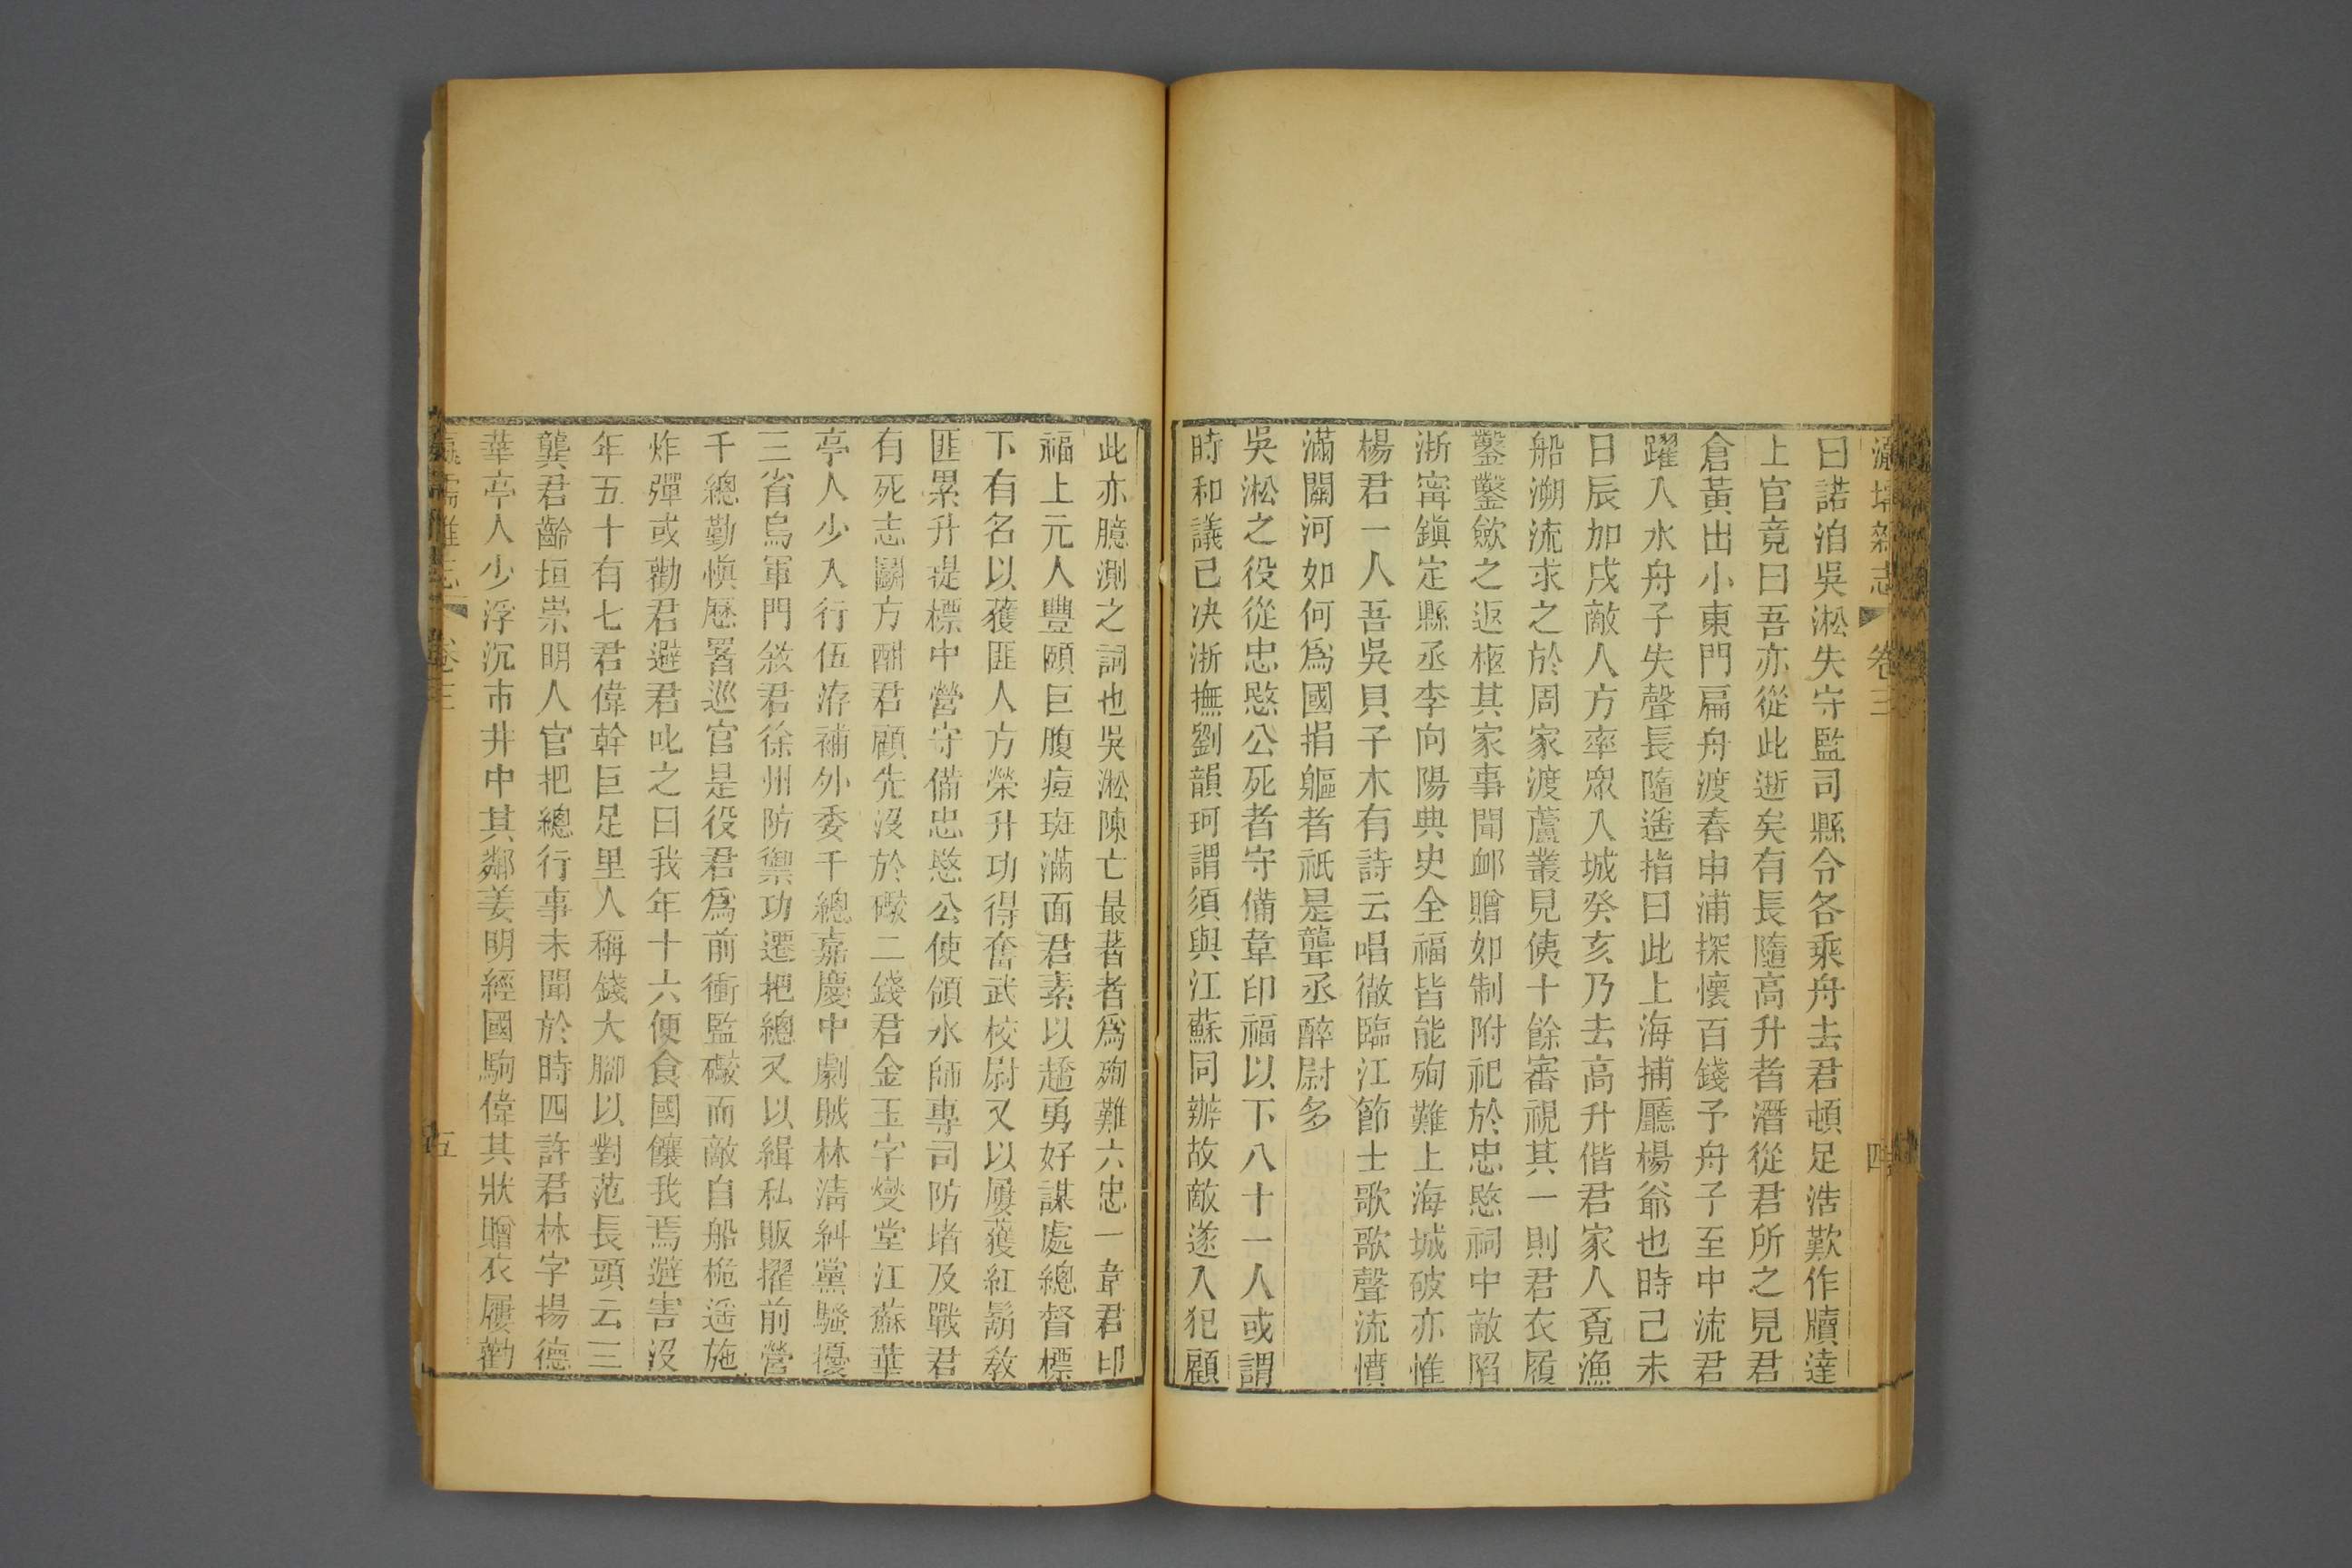 瀛壖雜志 卷三 四
曰諾洎吳淞失守監司縣令各乘舟去君頓足浩歎作牘達
上官竟曰吾亦從此逝矣有長隨高升者潛從君所之見君
倉黃出小東門扁舟渡春申浦探懷百錢予舟子至中流君
躍入水舟子失聲長隨遙指曰此上海捕廳楊爺也時己未
日辰加戌敵人方率眾入城癸亥乃去高升偕君家人覓漁
船溯流求之於周家渡蘆叢見侇十餘審視其一則君衣履
鑿鑿歛之返柩其家事聞卹贈如制附祀於忠愍祠中敵陷
浙甯鎮定縣丞李向陽典史全福皆能殉難上海城破亦惟
楊君一人吾吳貝子木有詩云唱徹臨江節士歌歌聲流憤
滿關河如何爲國捐軀者祇是聾丞醉尉多
吳淞之役從忠愍公死者守備韋印福以下八十一人或謂
時和議已決浙撫劉韻珂謂須與江蘇同辦故敵遂入犯顧
此亦臆測之詞也吳淞陳亡最著者爲殉難六忠一韋君印
福上元人豐頤巨腹痘斑滿面君素以趫勇好謀處總督標
下有名以獲匪人方榮升功得奮武校尉又以屢獲紅鬍教
匪累升提標中營守備忠愍公使領水師專司防堵及戰君
有死志鬭方酣君顧先沒於礮二錢君金玉字燮堂江蘇華
亭人少入行伍洊補外委千總嘉慶中劇賊林淸糾黨騷擾
三省烏軍門敘君徐州防禦功遷把總又以緝私販擢前營
千總勤愼歷署巡官是役君爲前衝監礮而敵自船桅遥施
炸彈或勸君避君叱之曰我年十六便食國饟我焉避害沒
年五十有七君偉幹巨足里人稱錢大腳以對范長頭云三
龔君齡垣崇明人官把總行事未聞於時四許君林字揚德
華亭人少浮沉市井中其鄰姜明經國駒偉其狀贈衣屨勸
瀛壖雜志 卷三 五